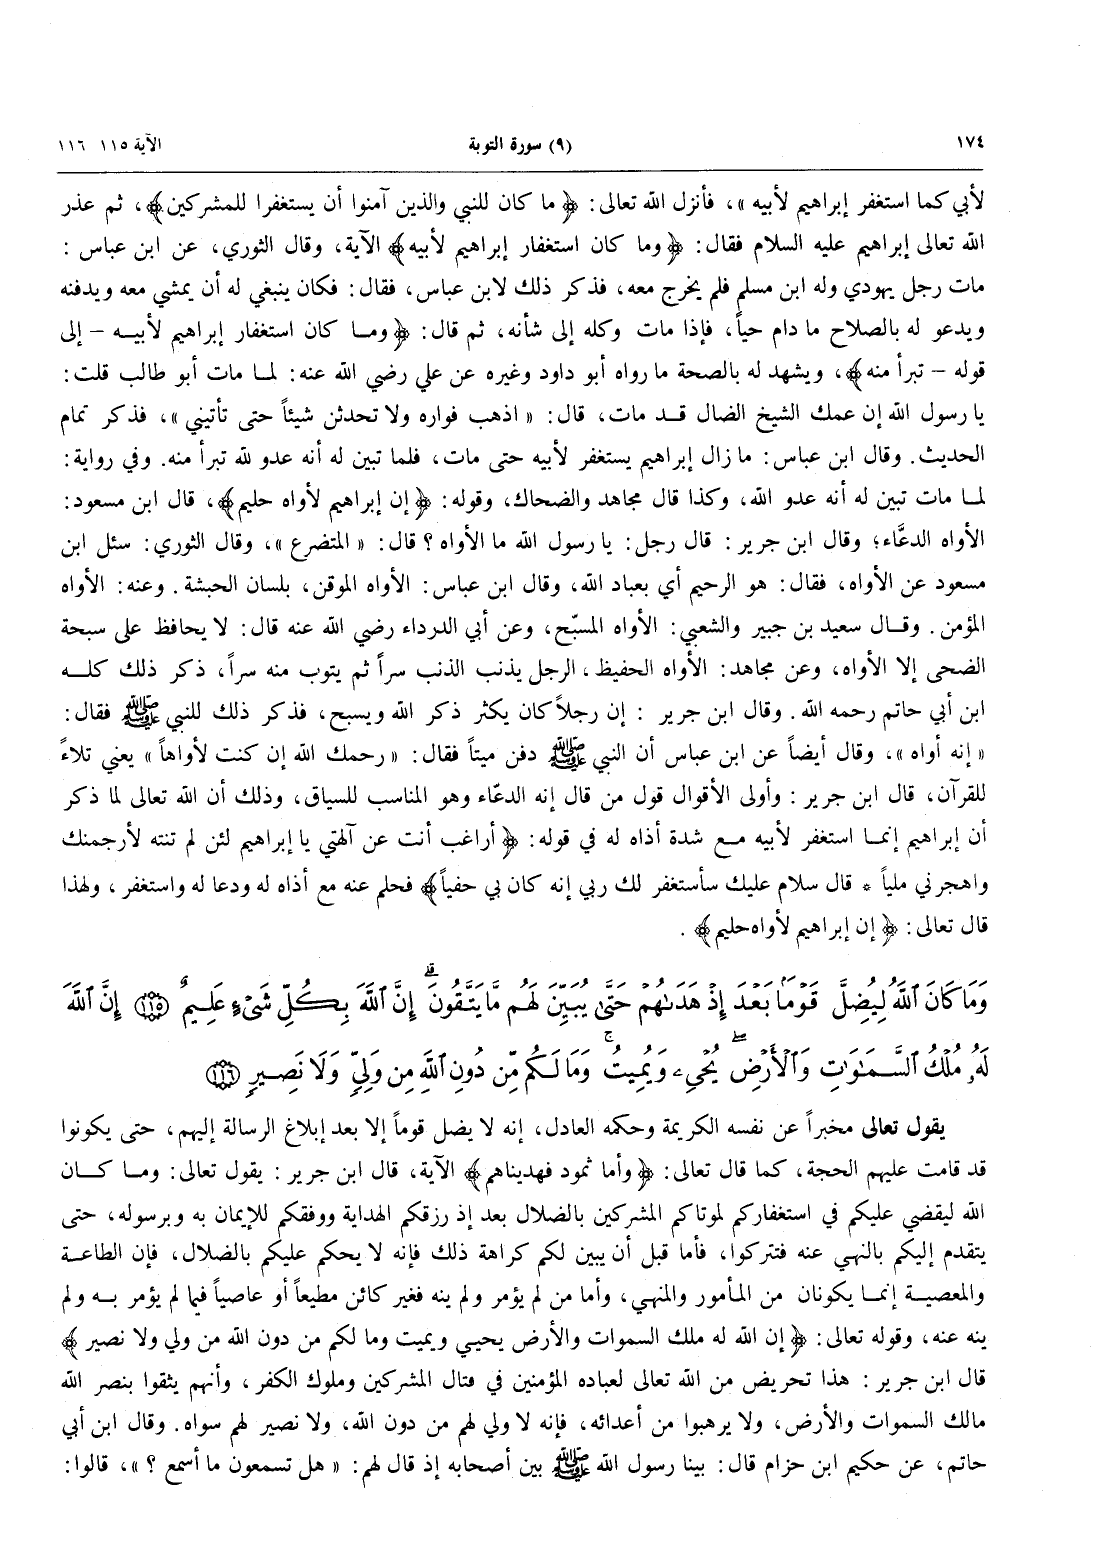 ١٧٤ (٩) سورة التوبة الآية ١١٥ ١١٦
لأبي كما استغفر إبراهيم لأبيه »، فأنزل الله تعالى: ﴿ ما كان للنبي والذين آمنوا أن يستغفرا للمشركين﴾، ثم عذر
الله تعالى إبراهيم عليه السلام فقال: ﴿وما كان استغفار إبراهيم لأبيه﴾ الآية، وقال الثوري، عن ابن عباس :
مات رجل يهودي وله ابن مسلم فلم يخرج معه، فذكر ذلك لابن عباس، فقال: فكان ينبغي له أن يمشي معه ويدفنه
ويدعو له بالصلاح ما دام حياً، فإذا مات وكله إلى شأنه، ثم قال: ﴿وما كان استغفار إبراهيم لأبيه - إلى
قوله - تبرأ منه﴾، ويشهد له بالصحة ما رواه أبو داود وغيره عن علي رضي الله عنه: لما مات أبو طالب قلت:
يا رسول الله إن عمك الشيخ الضال قد مات، قال: « اذهب فواره ولا تحدثن شيئاً حتى تأتيني »، فذكر تمام
الحديث. وقال ابن عباس: ما زال إبراهيم يستغفر لأبيه حتى مات، فلما تبين له أنه عدو لله تبرأ منه. وفي رواية:
لما مات تبين له أنه عدو الله، وكذا قال مجاهد والضحاك، وقوله: ﴿إن إبراهيم لأواه حليم﴾، قال ابن مسعود:
الأواه الدعَّاء؛ وقال ابن جرير : قال رجل: يا رسول الله ما الأواه ؟ قال: « المتضرع »، وقال الثوري: سئل ابن
مسعود عن الأواه، فقال: هو الرحيم أي بعباد الله، وقال ابن عباس: الأواه الموقن، بلسان الحبشة. وعنه: الأواه
المؤمن. وقال سعيد بن جبير والشعبي: الأواه المسبّح، وعن أبي الدرداء رضي الله عنه قال: لا يحافظ على سبحة
الضحى إلا الأواه، وعن مجاهد: الأواه الحفيظ، الرجل يذنب الذنب سراً ثم يتوب منه سراً، ذكر ذلك كله
ابن أبي حاتم رحمه الله. وقال ابن جرير : إن رجلاً كان يكثر ذكر الله ويسبح، فذكر ذلك للنبي ﷺ فقال:
« إنه أواه »، وقال أيضاً عن ابن عباس أن النبي ﷺ دفن ميتاً فقال: « رحمك الله إن كنت لأواهاً » يعني تلاءً
للقرآن، قال ابن جرير : وأولى الأقوال قول من قال إنه الدعّاء وهو المناسب للسياق، وذلك أن الله تعالى لما ذكر
أن إبراهيم إنما استغفر لأبيه مع شدة أذاه له في قوله: ﴿أراغب أنت عن آلهتي يا إبراهيم لئن لم تنته لأرجمنك
واهجرني ملياً * قال سلام عليك سأستغفر لك ربي إنه كان بي حفياً﴾ فحلم عنه مع أذاه له ودعا له واستغفر، ولهذا
قال تعالى: ﴿إن إبراهيم لأواه حليم﴾ .
وَمَا كَانَ ٱللَّهُ لِيُضِلَّ قَوْمًۢا بَعْدَ إِذْ هَدَىٰهُمْ حَتَّىٰ يُبَيِّنَ لَهُم مَّا يَتَّقُونَ ۚ إِنَّ ٱللَّهَ بِكُلِّ شَىْءٍ عَلِيمٌ ﴿١١٥﴾ إِنَّ ٱللَّهَ
لَهُۥ مُلْكُ ٱلسَّمَـٰوَٰتِ وَٱلْأَرْضِ ۖ يُحْىِۦ وَيُمِيتُ ۚ وَمَا لَكُم مِّن دُونِ ٱللَّهِ مِن وَلِىٍّ وَلَا نَصِيرٍ ﴿١١٦﴾
يقول تعالى مخبراً عن نفسه الكريمة وحكمه العادل، إنه لا يضل قوماً إلا بعد إبلاغ الرسالة إليهم، حتى يكونوا
قد قامت عليهم الحجة، كما قال تعالى: ﴿وأما ثمود فهديناهم﴾ الآية، قال ابن جرير : يقول تعالى: وما كان
الله ليقضي عليكم في استغفاركم لموتاكم المشركين بالضلال بعد إذ رزقكم الهداية ووفقكم للإيمان به وبرسوله، حتى
يتقدم إليكم بالنهي عنه فتتركوا، فأما قبل أن يبين لكم كراهة ذلك فإنه لا يحكم عليكم بالضلال، فإن الطاعة
والمعصية إنما يكونان من المأمور والمنهي، وأما من لم يؤمر ولم ينه فغير كائن مطيعاً أو عاصياً فيما لم يؤمر به ولم
ينه عنه، وقوله تعالى: ﴿إن الله له ملك السموات والأرض يحيي ويميت وما لكم من دون الله من ولي ولا نصير ﴾
قال ابن جرير : هذا تحريض من الله تعالى لعباده المؤمنين في قتال المشركين وملوك الكفر، وأنهم يثقوا بنصر الله
مالك السموات والأرض، ولا يرهبوا من أعدائه، فإنه لا ولي لهم من دون الله، ولا نصير لهم سواه. وقال ابن أبي
حاتم، عن حكيم ابن حزام قال: بينا رسول الله ﷺ بين أصحابه إذ قال لهم: « هل تسمعون ما أسمع ؟ »، قالوا: